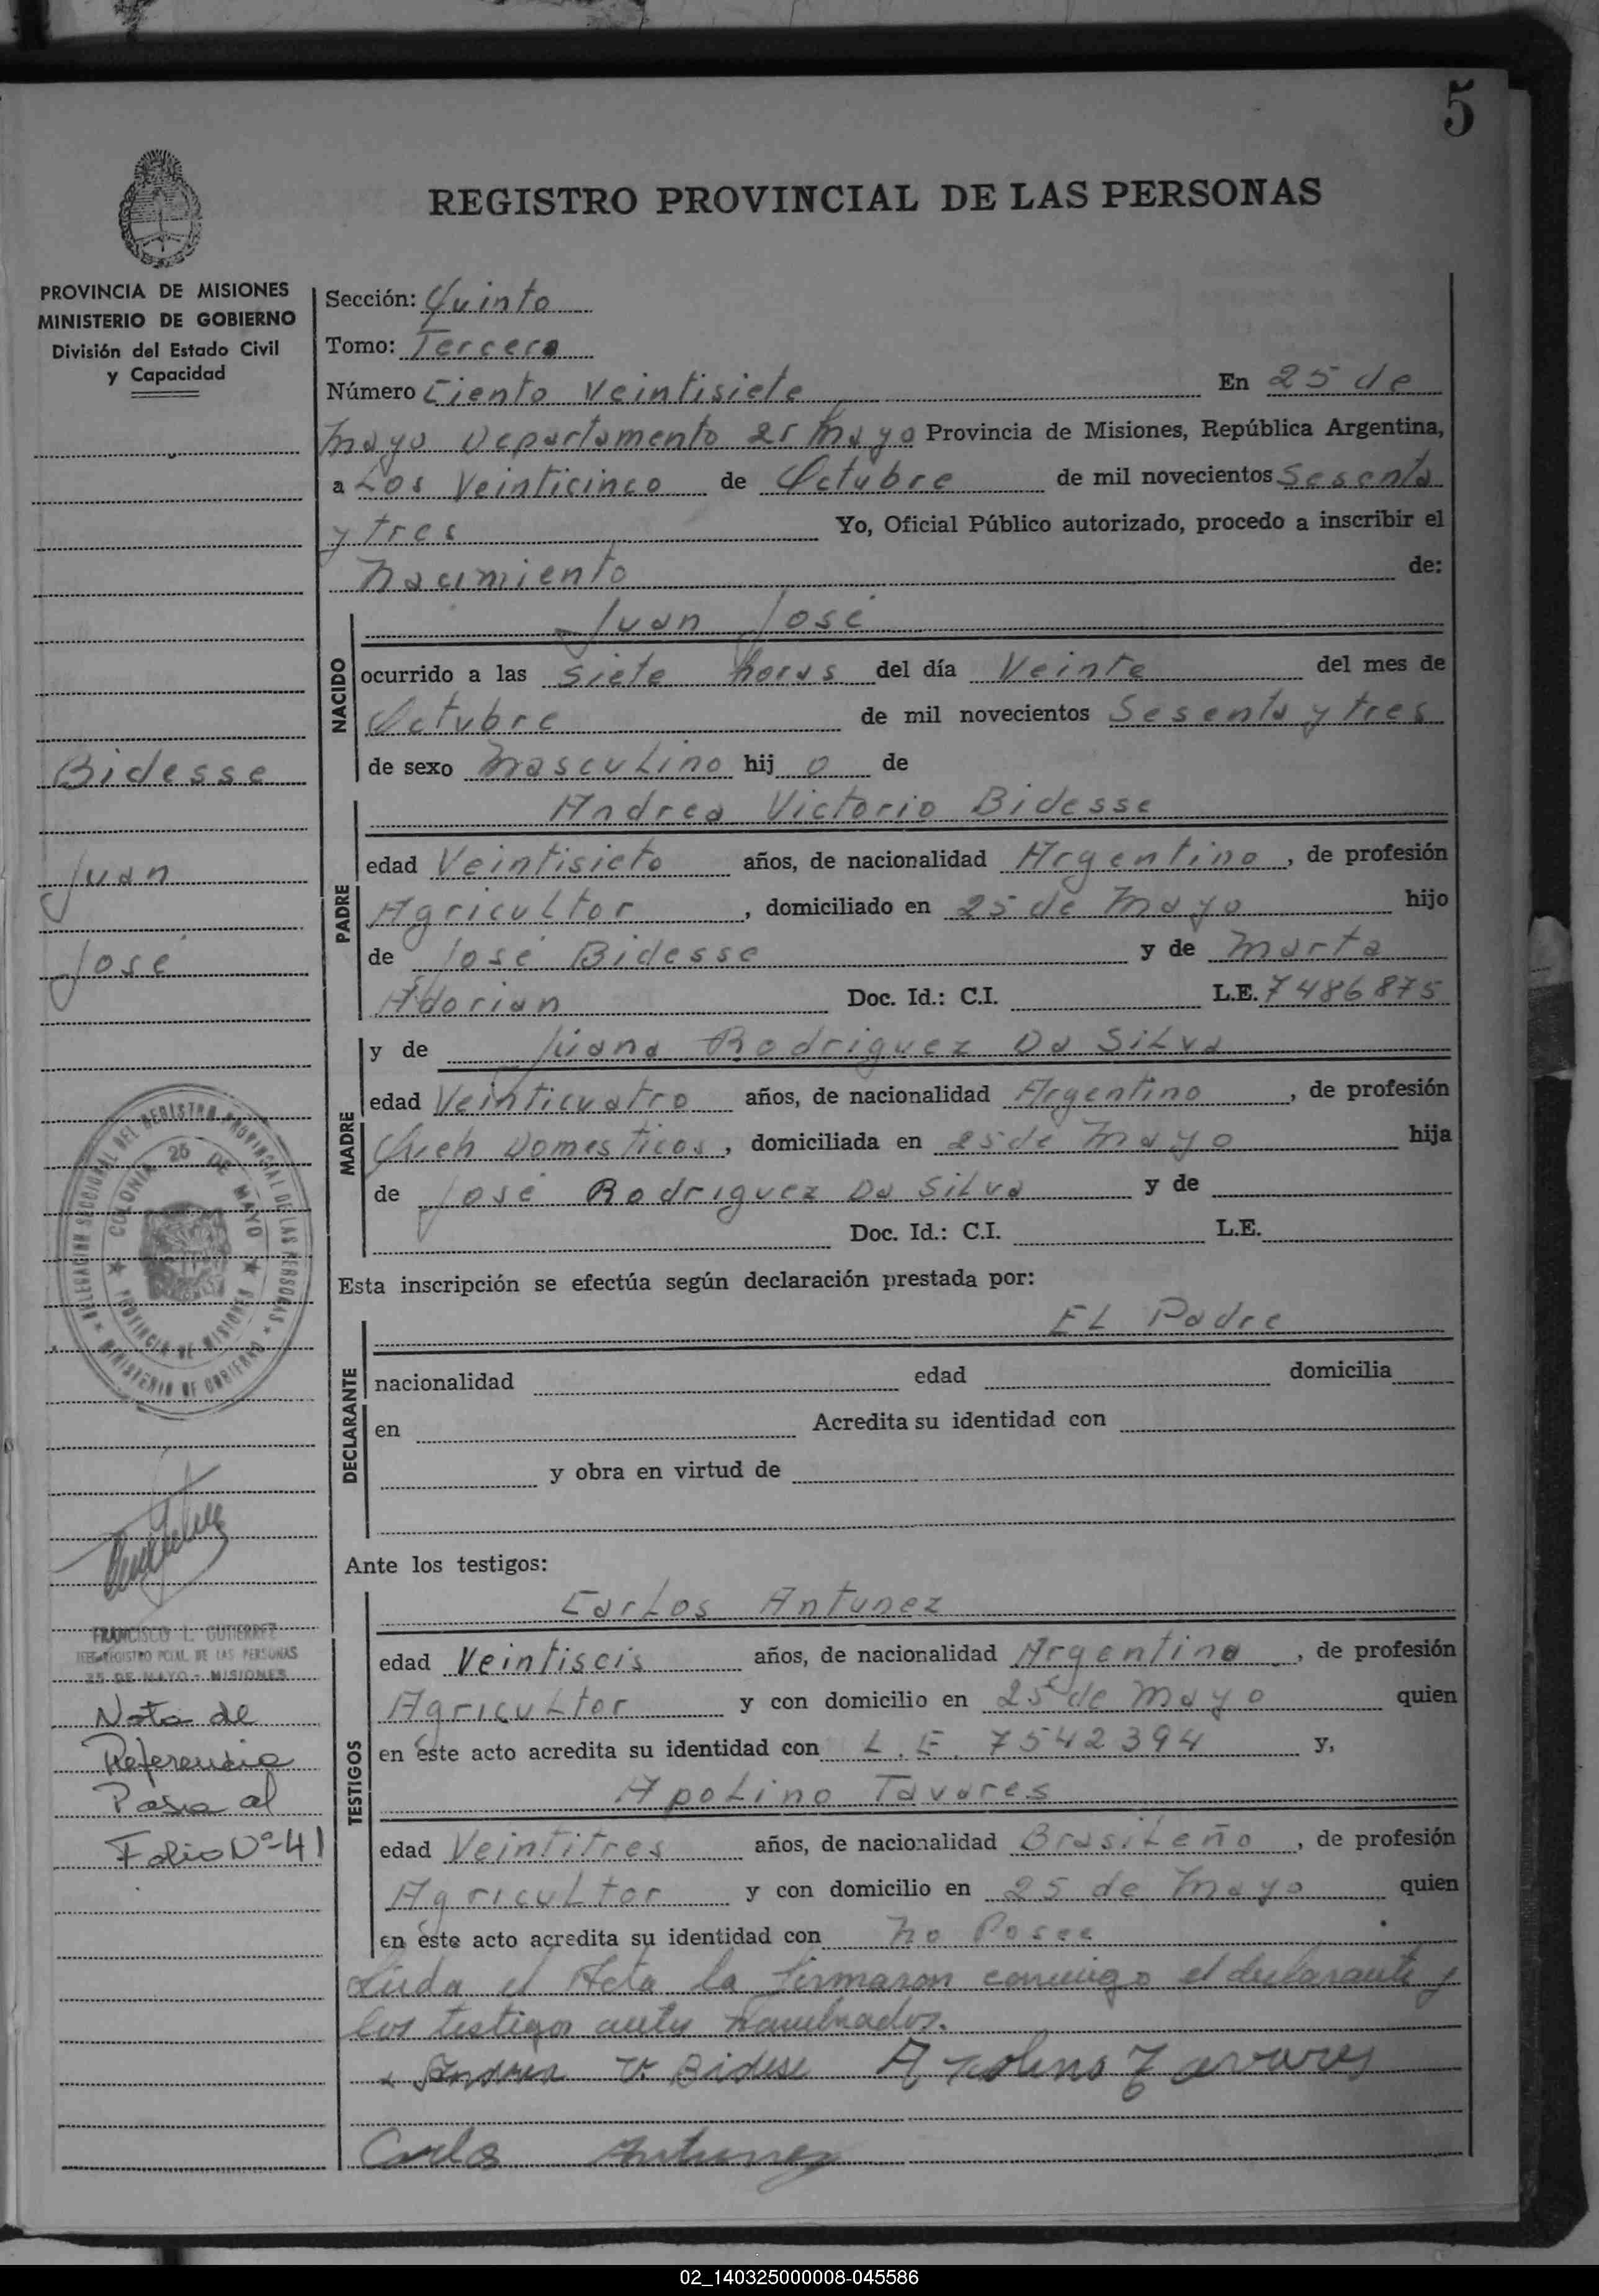 5
REGISTRO PROVINCIAL DE LAS PERSONAS
PROVINCIA DE MISIONES
MINISTERIO DE GOBIERNO
División del Estado Civil
y Capacidad
Bidesse
Juan
José
DELEGACION SECCIONAL DEL REGISTRO PROVINCIAL DE LAS PERSONAS
MINISTERIO DE GOBIERNO
COLONIA 25 DE MAYO
PROVINCIA DE MISIONES
FRANCISCO L. GUTIERREZ
REGISTRO PCIAL. DE LAS PERSONAS
25 DE MAYO - MISIONES
Nota de
Referencia
Pasa al
Folio Nº 41
Sección: Quinto
Tomo: Tercero
Número Ciento Veintisiete En 25 de
Mayo Departamento 25 Mayo Provincia de Misiones, República Argentina,
a Los Veinticinco de Octubre de mil novecientos Sesenta
y tres Yo, Oficial Público autorizado, procedo a inscribir el
Nacimiento de:
Juan José
NACIDO
ocurrido a las Siete horas del día Veinte del mes de
Octubre de mil novecientos Sesenta y tres
de sexo Masculino hij o de
Andrea Victorio Bidesse
PADRE
edad Veintisiete años, de nacionalidad Argentino, de profesión
Agricultor, domiciliado en 25 de Mayo hijo
de José Bidesse y de Marta
Adorian Doc. Id.: C.I. L.E. 7486875
MADRE
y de Juana Rodriguez Da Silva
edad Veinticuatro años, de nacionalidad Argentina, de profesión
Queh Domesticos, domiciliada en 25 de Mayo hija
de José Rodriguez Da Silva y de
Doc. Id.: C.I. L.E.
Esta inscripción se efectúa según declaración prestada por:
El Padre
DECLARANTE
nacionalidad edad domicilia
en Acredita su identidad con
y obra en virtud de
Ante los testigos:
Carlos Antunez
TESTIGOS
edad Veintiseis años, de nacionalidad Argentino, de profesión
Agricultor y con domicilio en 25 de Mayo quien
en este acto acredita su identidad con L.E. 7542394 y,
Apolino Tavares
edad Veintitres años, de nacionalidad Brasileño, de profesión
Agricultor y con domicilio en 25 de Mayo quien
en este acto acredita su identidad con No Posee
Leida el Acta la firmaron conmigo el declarante y
los testigos antes nombrados.
Andrea V. Bidese Apolino Tavares
Carlos Antunez
02_140325000008-045586